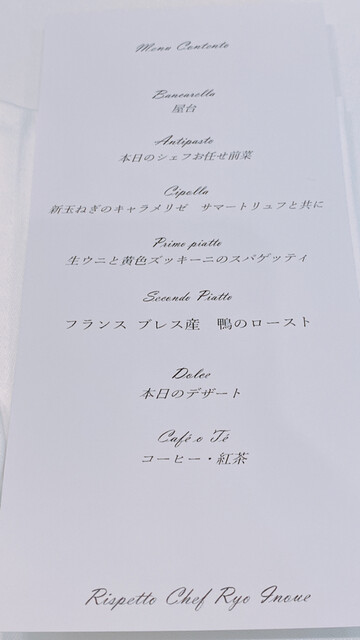 Menu Contento
Bancarella
屋台
Antipasto
本日のシェフお任せ前菜
Cipolla
新玉ねぎのキャラメリゼ　サマートリュフと共に
Primo piatto
生ウニと黄色ズッキーニのスパゲッティ
Secondo Piatto
フランス ブレス産　鴨のロースト
Dolce
本日のデザート
Café o Té
コーヒー・紅茶
Rispetto Chef Ryo Inoue